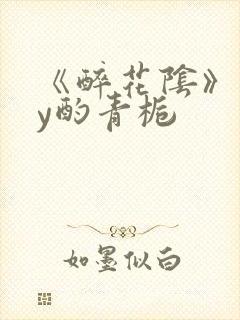 《醉花陰》
y酌青栀
如墨似白